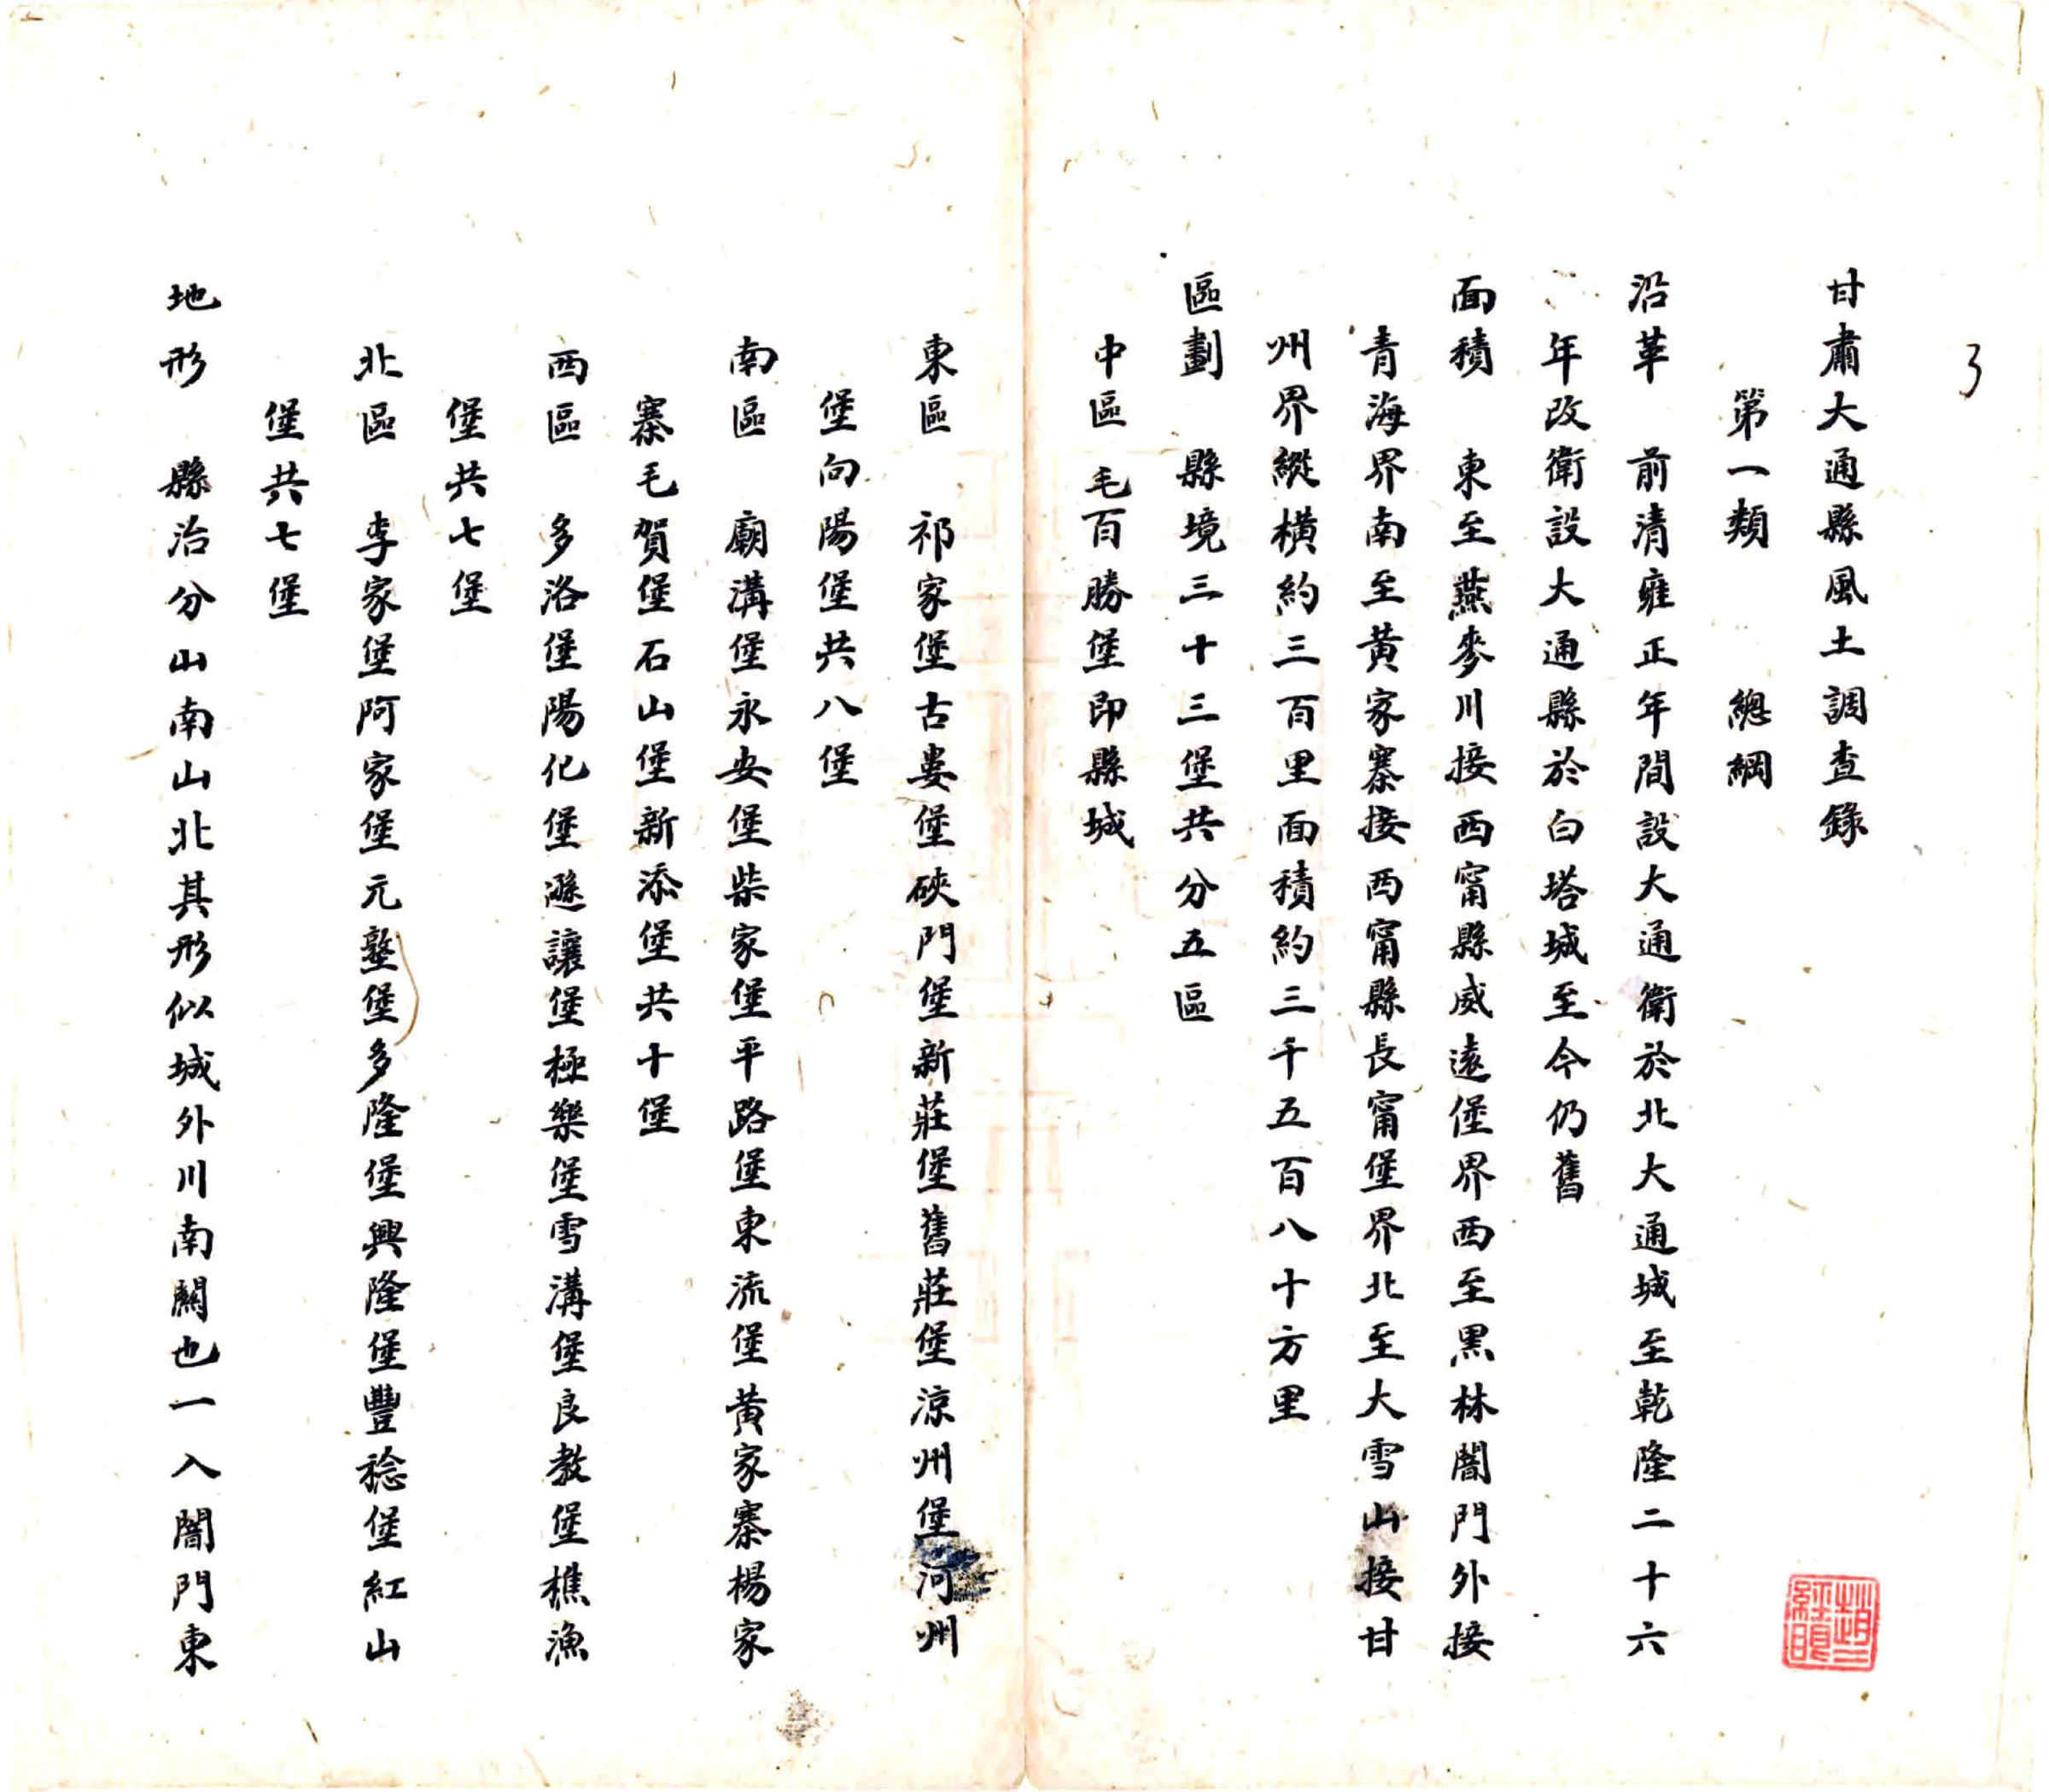 3
甘肅大通縣風土調查錄
第一類　總綱
沿革　前清雍正年間設大通衛於北大通城至乾隆二十六
年改衛設大通縣於白塔城至今仍舊
面積　東至燕麥川接西甯縣威遠堡界西至黑林闇門外接
青海界南至黃家寨接西甯縣長甯堡界北至大雪山接甘
州界縱橫約三百里面積約三千五百八十方里
區劃　縣境三十三堡共分五區
中區　毛百勝堡即縣城
東區　祁家堡古婁堡硤門堡新莊堡舊莊堡涼州堡河州
堡向陽堡共八堡
南區　廟溝堡永安堡柴家堡平路堡東流堡黃家寨楊家
寨毛賀堡石山堡新添堡共十堡
西區　多洛堡陽化堡遜讓堡極樂堡雪溝堡良教堡樵漁
堡共七堡
北區　李家堡阿家堡元墪堡多隆堡興隆堡豐稔堡紅山
堡共七堡
地形　縣治分山南山北其形似城外川南關也一入闇門東